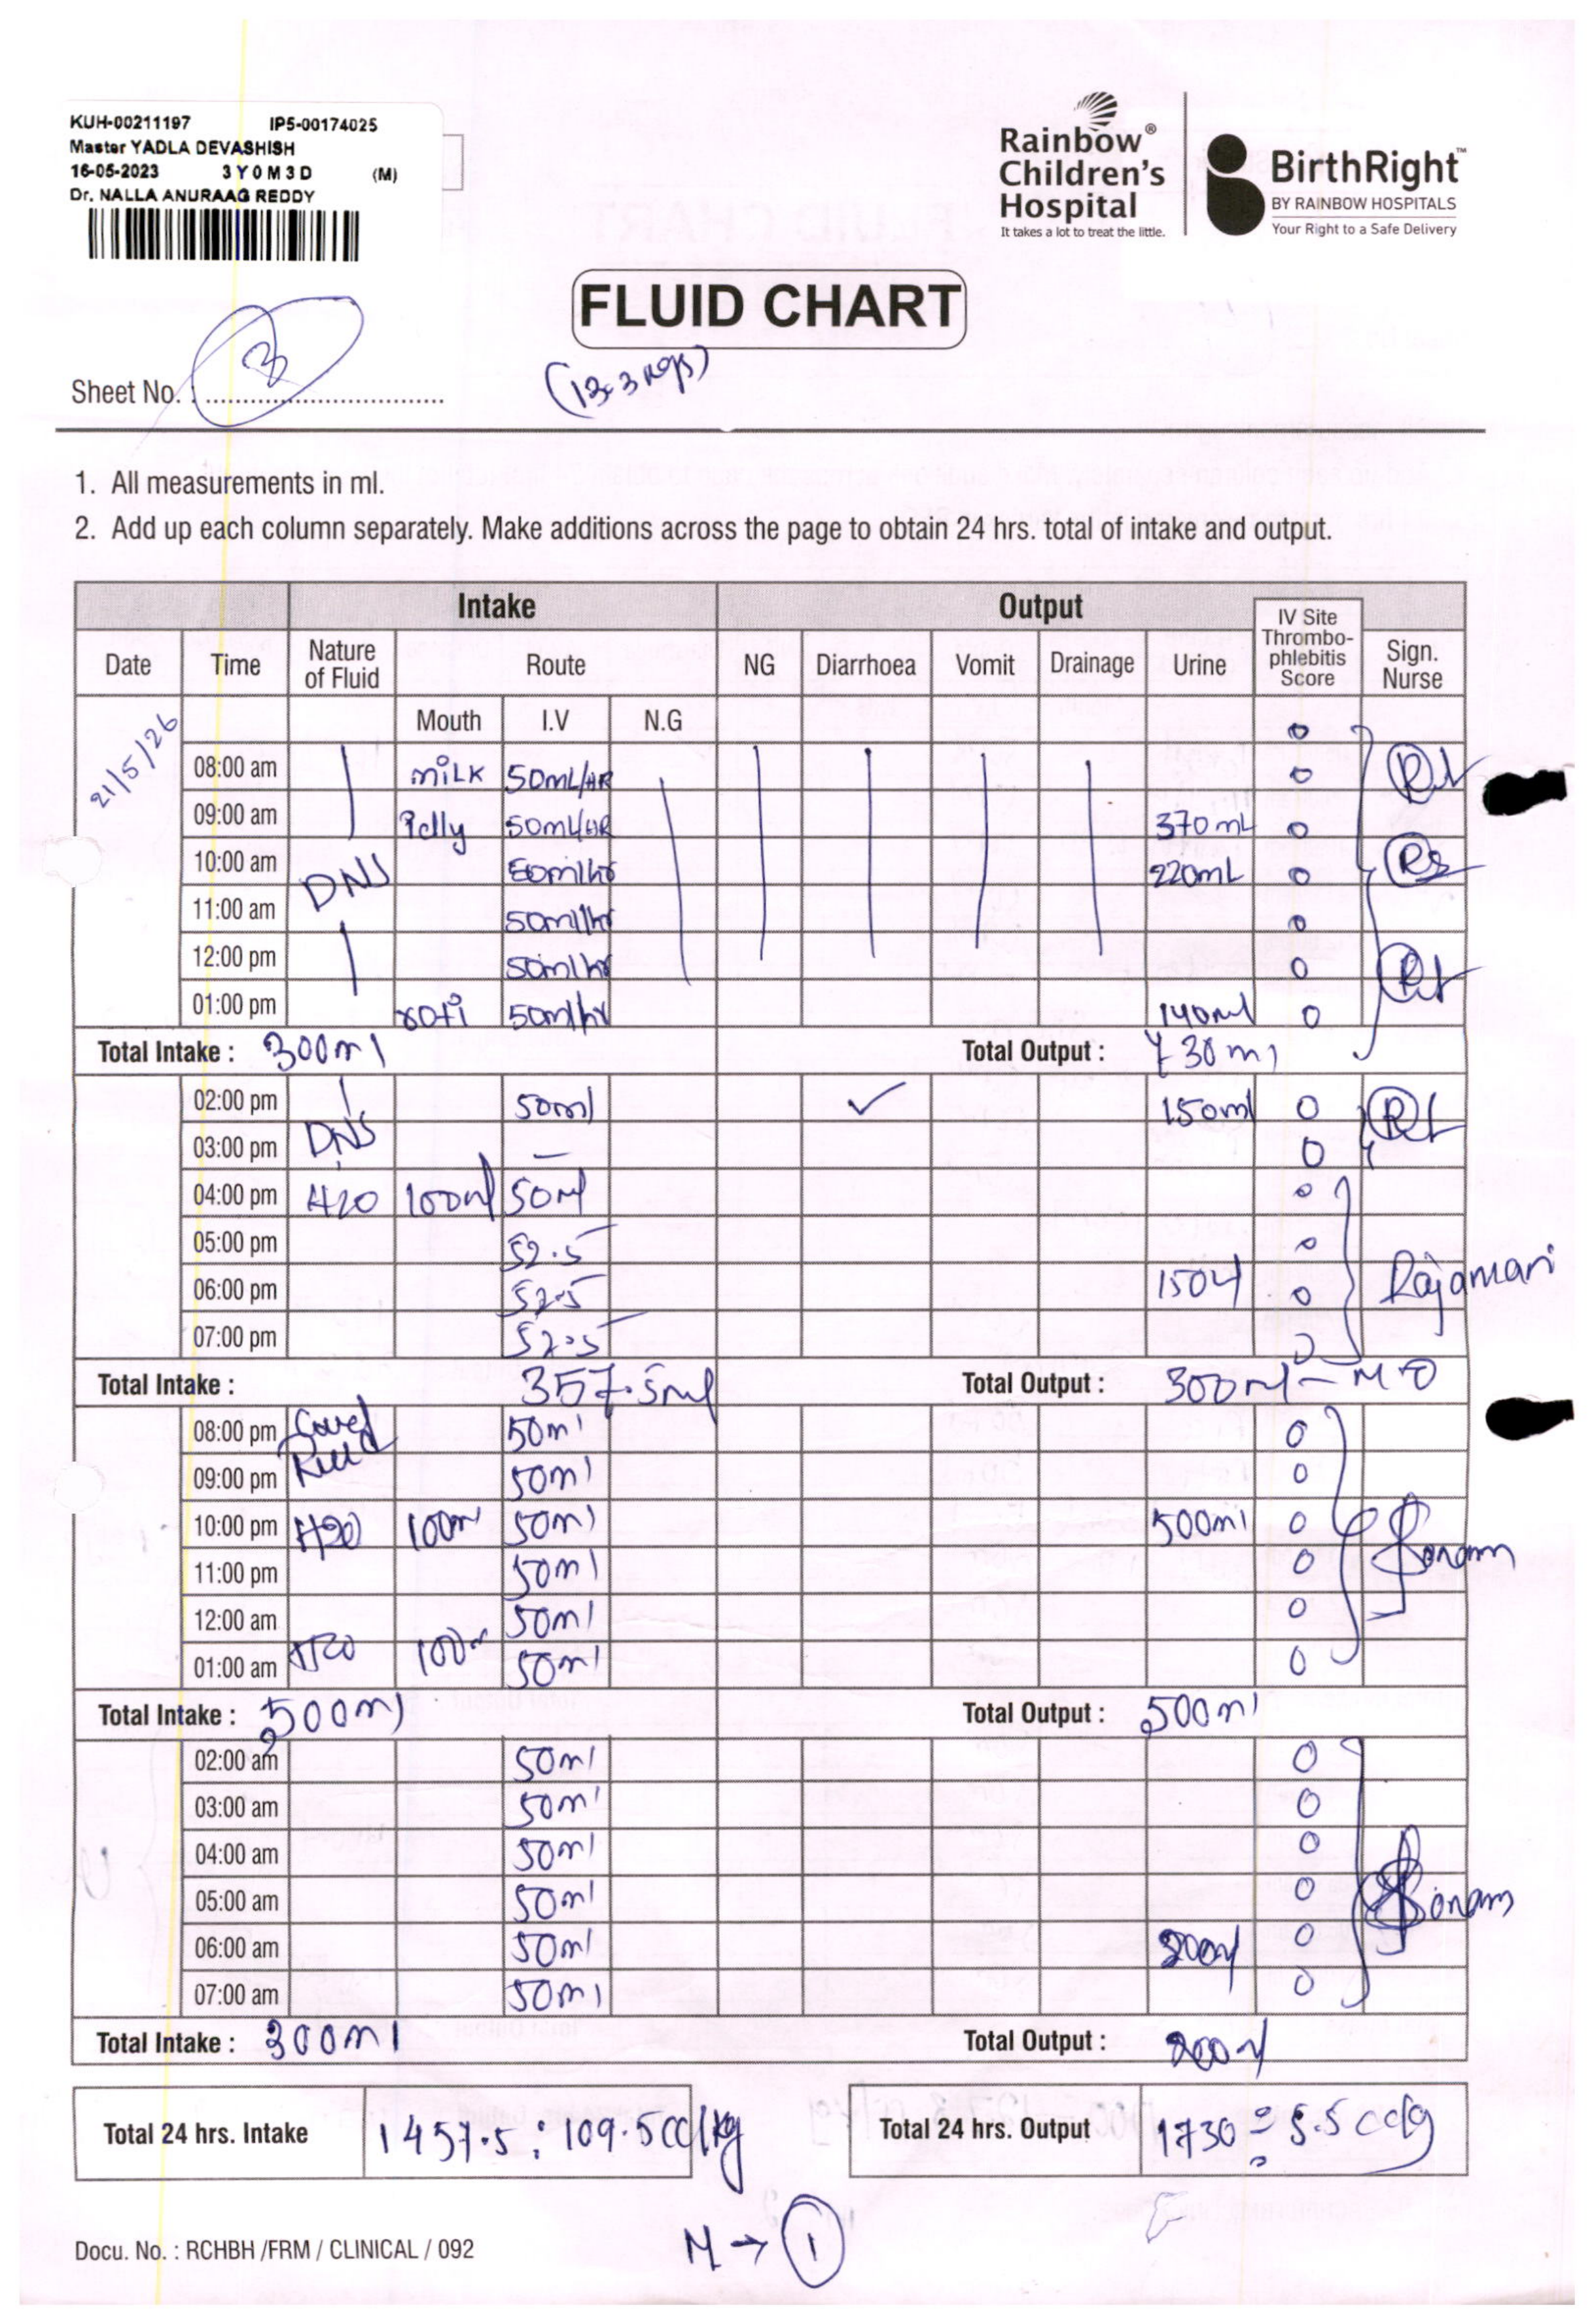 KUH-00211197 IP5-00174025
Master YADLA DEVASHISH
16-05-2023 3Y0M3D (M)
Dr. NALLA ANURAAG REDDY
Rainbow®
Children's
Hospital
It takes a lot to treat the little.
BirthRight™
BY RAINBOW HOSPITALS
Your Right to a Safe Delivery
FLUID CHART
Sheet No. : 3
(13.3 kgs)
1. All measurements in ml.
2. Add up each column separately. Make additions across the page to obtain 24 hrs. total of intake and output.
Intake Output
Date Time Nature of Fluid Route NG Diarrhoea Vomit Drainage Urine IV Site Thrombo-phlebitis Score Sign. Nurse
Mouth I.V N.G 0
21/5/26
08:00 am milk 50mL/HR 0
09:00 am 50ml/HR 370mL 0
10:00 am DNS 50ml/hr 220mL 0
11:00 am 50ml/hr 0
12:00 pm 50ml/hr 0
01:00 pm roti 50ml/hr 140ml 0
Total Intake : 300ml Total Output : 730ml
02:00 pm DNS 50ml ✓ 150ml 0
03:00 pm – 0
04:00 pm H20 100ml 50ml 0
05:00 pm 52.5 0
06:00 pm 52.5 150ml 0 Rajamani
07:00 pm 52.5 0
Total Intake : 357.5ml Total Output : 300ml – M-0
08:00 pm 50ml 0
09:00 pm 50ml 0
10:00 pm H20 100ml 50ml 500ml 0
11:00 pm 50ml 0 Sonam
12:00 am 50ml 0
01:00 am H20 100ml 50ml 0
Total Intake : 500ml Total Output : 500ml
02:00 am 50ml 0
03:00 am 50ml 0
04:00 am 50ml 0
05:00 am 50ml 0 Sonam
06:00 am 50ml 200ml 0
07:00 am 50ml 0
Total Intake : 300ml Total Output : 200ml
Total 24 hrs. Intake 1457.5 : 109.5cc/kg Total 24 hrs. Output 1730 = 5.5
M → 1
Docu. No. : RCHBH /FRM / CLINICAL / 092